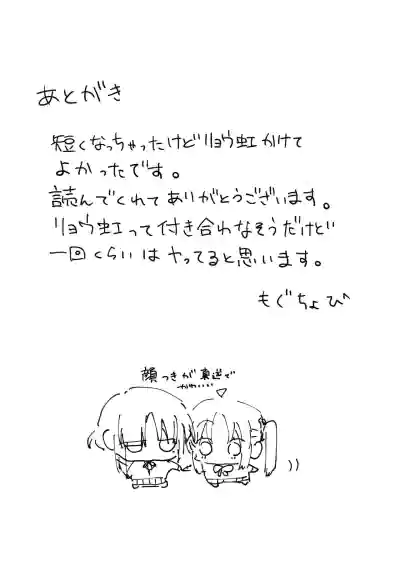 あとがき
短くなっちゃったけどリョウ虹かけて
よかったです。
読んでくれてありがとうございます。
リョウ虹って付き合わなそうだけど
一回くらいはヤってると思います。
もぐちょび
顔つきが真逆で
かわ…